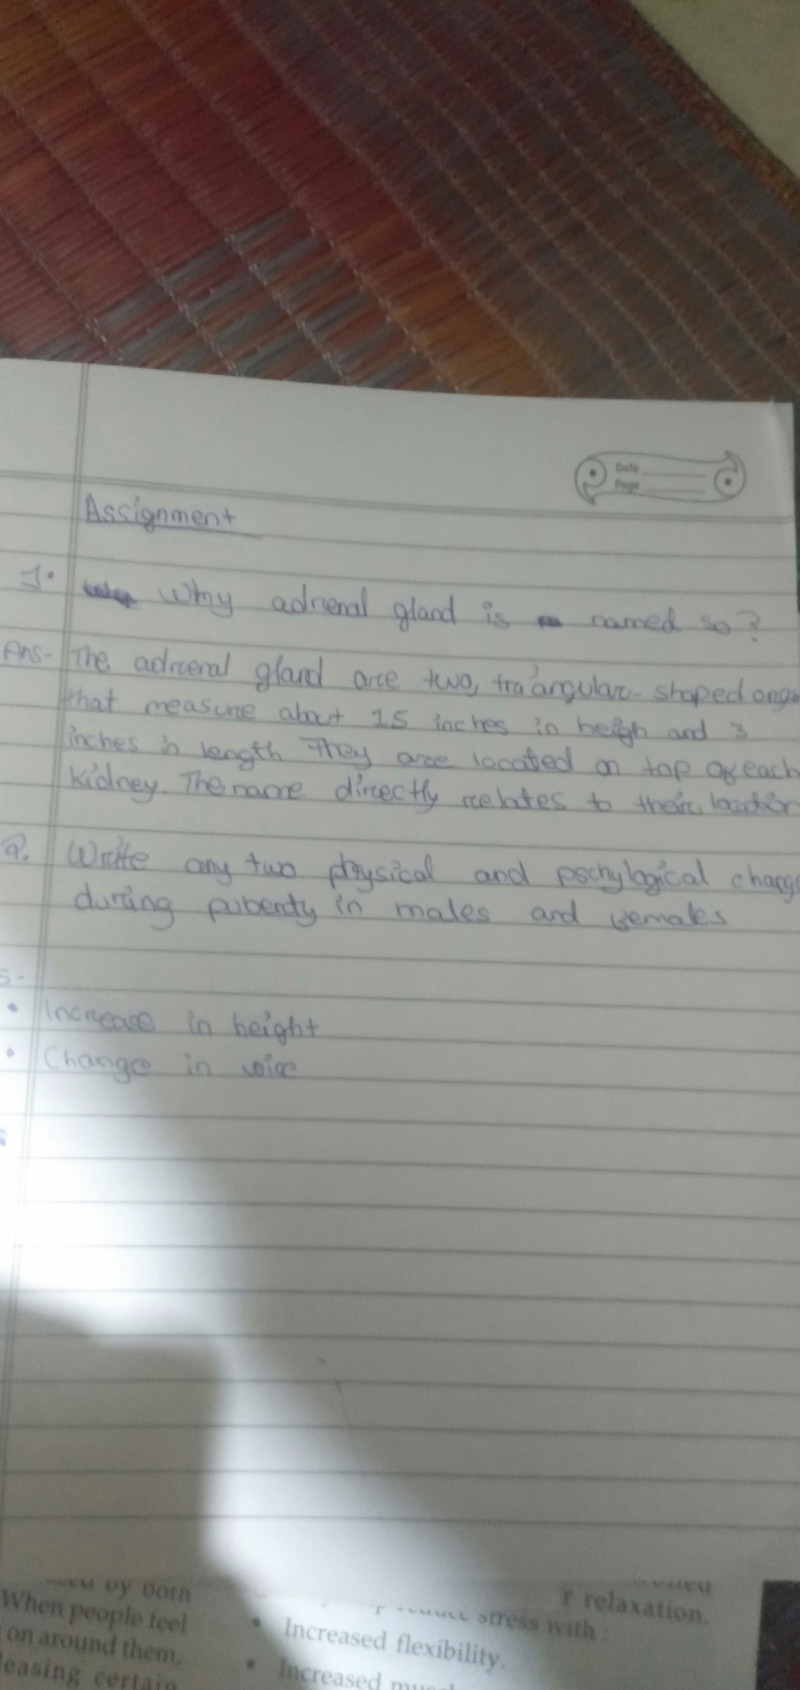 Date
Page
Assignment
1. Why adrenal gland is named so?
Ans- The adreenal gland are two, traiangular-shaped
that measure about 1.5 inches in heigh and 3
inches in length They are located on top of each
kidney. The name directly relates to their location
Q. Write any two physical and pschylogical
during puberty in males and females
s-
• Increase in height
• Change in voice
by both
When people feel
on around them,
leasing certain
r relaxation.
stress with :
• Increased flexibility.
• Increased